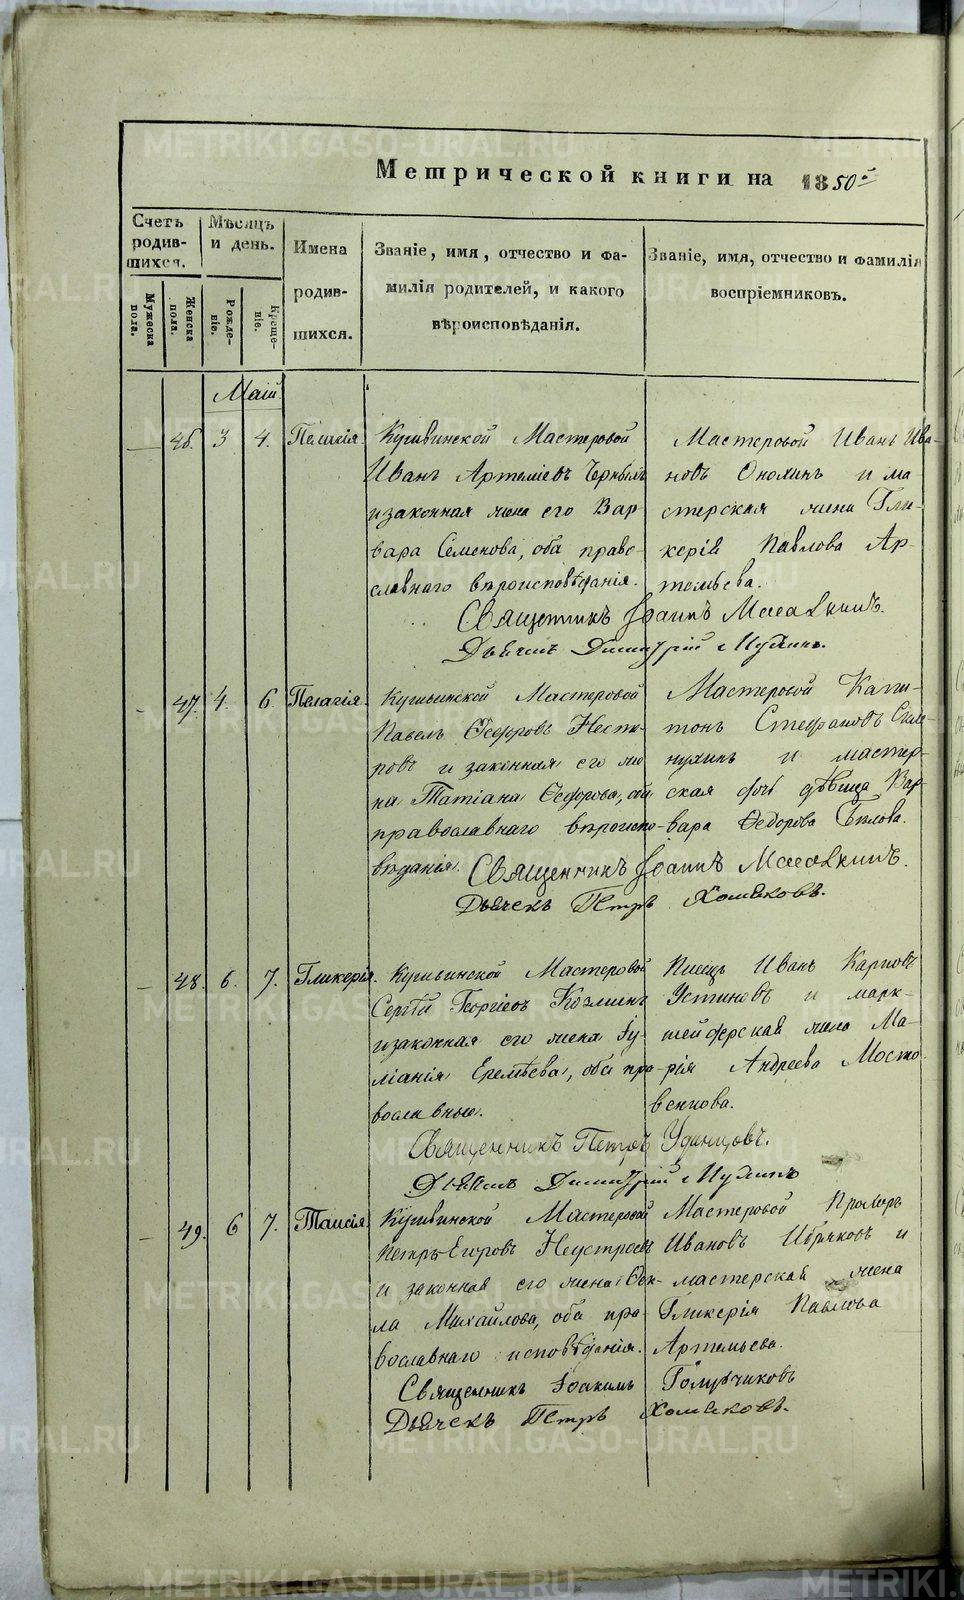 Метрической книги на 1850й
Счетъ родив-шихся.
Мѣсяцъ и день.
Имена родив-шихся.
Званіе, имя, отчество и фа-
милія родителей, и какого
вѣроисповѣданія.
Званіе, имя, отчество и фамилія
воспріемниковъ.
Мужеска пола.
Женска пола.
Рожде-ніе.
Креще-ніе.
Маій
— 46. 3 4. Пелагія. Кушвинской Мастеровой
Иванъ Артеміевъ
и законная жена его Вар-
вара Семенова, оба право-
славнаго вѣроисповѣданія.
Мастеровой Иванъ Ива-
новъ Онохинъ и ма-
стерская жена Гли-
керія Павлова Ар-
темьева.
Священникъ Іоаннъ
Дьячекъ Димитрій
- 47. 4. 6 Пелагія. Кушвинской Мастеровой
Павелъ Ѳедоровъ Несте-
ровъ и законная его же-
на Татіана Ѳедорова, оба
православнаго вѣроиспо-
вѣданія.
Мастеровой Капи-
тонъ Стефановъ
и мастер-
ская дочь дѣвица Вар-
вара Ѳедорова Бѣлова.
Священникъ Іоаннъ
Дьячекъ Петръ Хомяковъ.
- 48. 6. 7. Гликерія. Кушвинской Мастеровой
Сергѣй Георгіевъ Козминъ
и законная его жена Іу-
ліанія Еремѣева, оба пра-
вославные.
Писецъ Иванъ Карповъ
Устиновъ и марк-
шейдерская жена Ма-
рія Андреева Мосто-
венкова.
Священникъ Петръ Удинцовъ.
Дьячекъ Димитрій
- 49. 6 7. Таисія. Кушвинской Мастеровой
Петръ Егоровъ Неустроевъ
и законная его жена Ѳек-
ла Михайлова, оба пра-
вославнаго исповѣданія.
Мастеровой Прохоръ
Ивановъ и
мастерская жена
Гликерія Павлова
Артемьева.
Священникъ Іоакимъ Голубчиковъ
Дьячекъ Петръ Хомяковъ.
METRIKI.GASO-URAL.RU